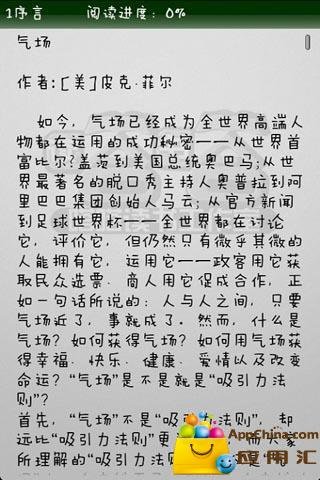 1序言 阅读进度: 0%
气场
作者:[美]皮克·菲尔
如今，气场已经成为全世界高端人
物都在运用的成功秘密——从世界首
富比尔?盖茨到美国总统奥巴马;从世
界最著名的脱口秀主持人奥普拉到阿
里巴巴集团创始人马云;从官方新闻
到足球世界杯——全世界都在讨论
它，评价它，但仍然只有微乎其微的
人能拥有它，运用它——政客用它获
取民众选票、商人用它促成合作，正
如一句话所说的：人与人之间，只要
气场近了，事就成了。然而，什么是
气场？如何获得气场？如何用气场获
得幸福、快乐、健康、爱情以及改变
命运？“气场”是不是就是“吸引力法
则”？
首先，“气场”不是“吸引力法则”，却
远比“吸引力法则”更
所理解的“吸引力法则
AppChina.com
应用汇